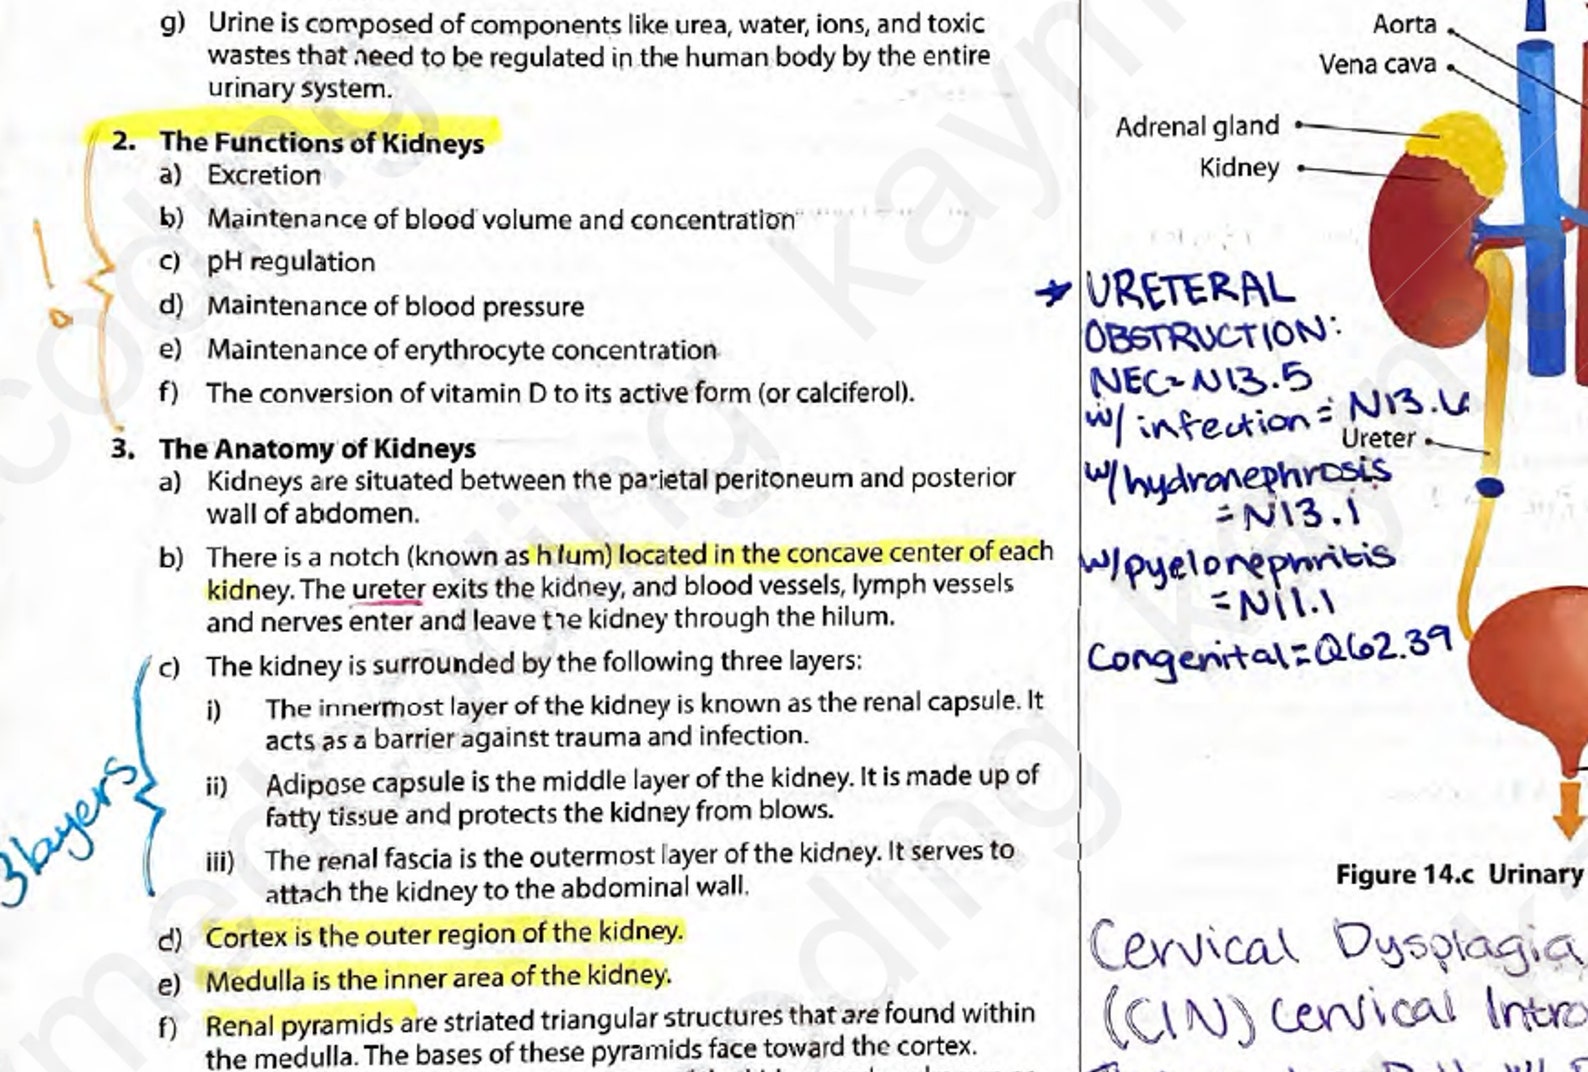 g) Urine is composed of components like urea, water, ions, and toxic
wastes that need to be regulated in the human body by the entire
urinary system.
2. The Functions of Kidneys
a) Excretion
b) Maintenance of blood volume and concentration
c) pH regulation
d) Maintenance of blood pressure
e) Maintenance of erythrocyte concentration
f) The conversion of vitamin D to its active form (or calciferol).
3. The Anatomy of Kidneys
a) Kidneys are situated between the parietal peritoneum and posterior
wall of abdomen.
b) There is a notch (known as hilum) located in the concave center of each
kidney. The ureter exits the kidney, and blood vessels, lymph vessels
and nerves enter and leave the kidney through the hilum.
c) The kidney is surrounded by the following three layers:
i) The innermost layer of the kidney is known as the renal capsule. It
acts as a barrier against trauma and infection.
ii) Adipose capsule is the middle layer of the kidney. It is made up of
fatty tissue and protects the kidney from blows.
iii) The renal fascia is the outermost layer of the kidney. It serves to
attach the kidney to the abdominal wall.
3 layers
d) Cortex is the outer region of the kidney.
e) Medulla is the inner area of the kidney.
f) Renal pyramids are striated triangular structures that are found within
the medulla. The bases of these pyramids face toward the cortex.
Aorta
Vena cava
Adrenal gland
Kidney
URETERAL
OBSTRUCTION:
NEC = N13.5
w/ infection = N13.6
Ureter
w/ hydronephrosis
= N13.1
w/pyelonephritis
= N11.1
Congenital = Q62.39
Figure 14.c Urinary
Cervical Dysplagia
(CIN) Cervical Intra
coding
kaym